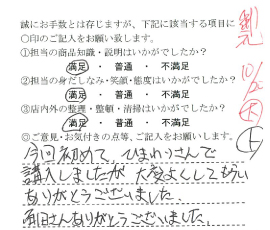 誠にお手数とは存じますが、下記に該当する項目に
〇印のご記入をお願い致します。
①担当の商品知識・説明はいかがでしたか？
満足 ・ 普通 ・ 不満足
②担当の身だしなみ・笑顔・態度はいかがでしたか？
満足 ・ 普通 ・ 不満足
③店内外の整理・整頓・清掃はいかがでしたか？
満足 ・ 普通 ・ 不満足
◎ご意見・お気付きの点等、ご記入をお願いします。
今回初めて、ひまわりさんで
購入しましたが 大変よくしてもらい
ありがとうございました。
角田さんありがとうございました。
10/2